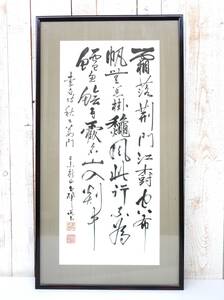 霜落荊門江樹空布
帆無恙掛龝風此行不為
鱸魚鱠自愛名山入剡中
李白詩秋下荊門